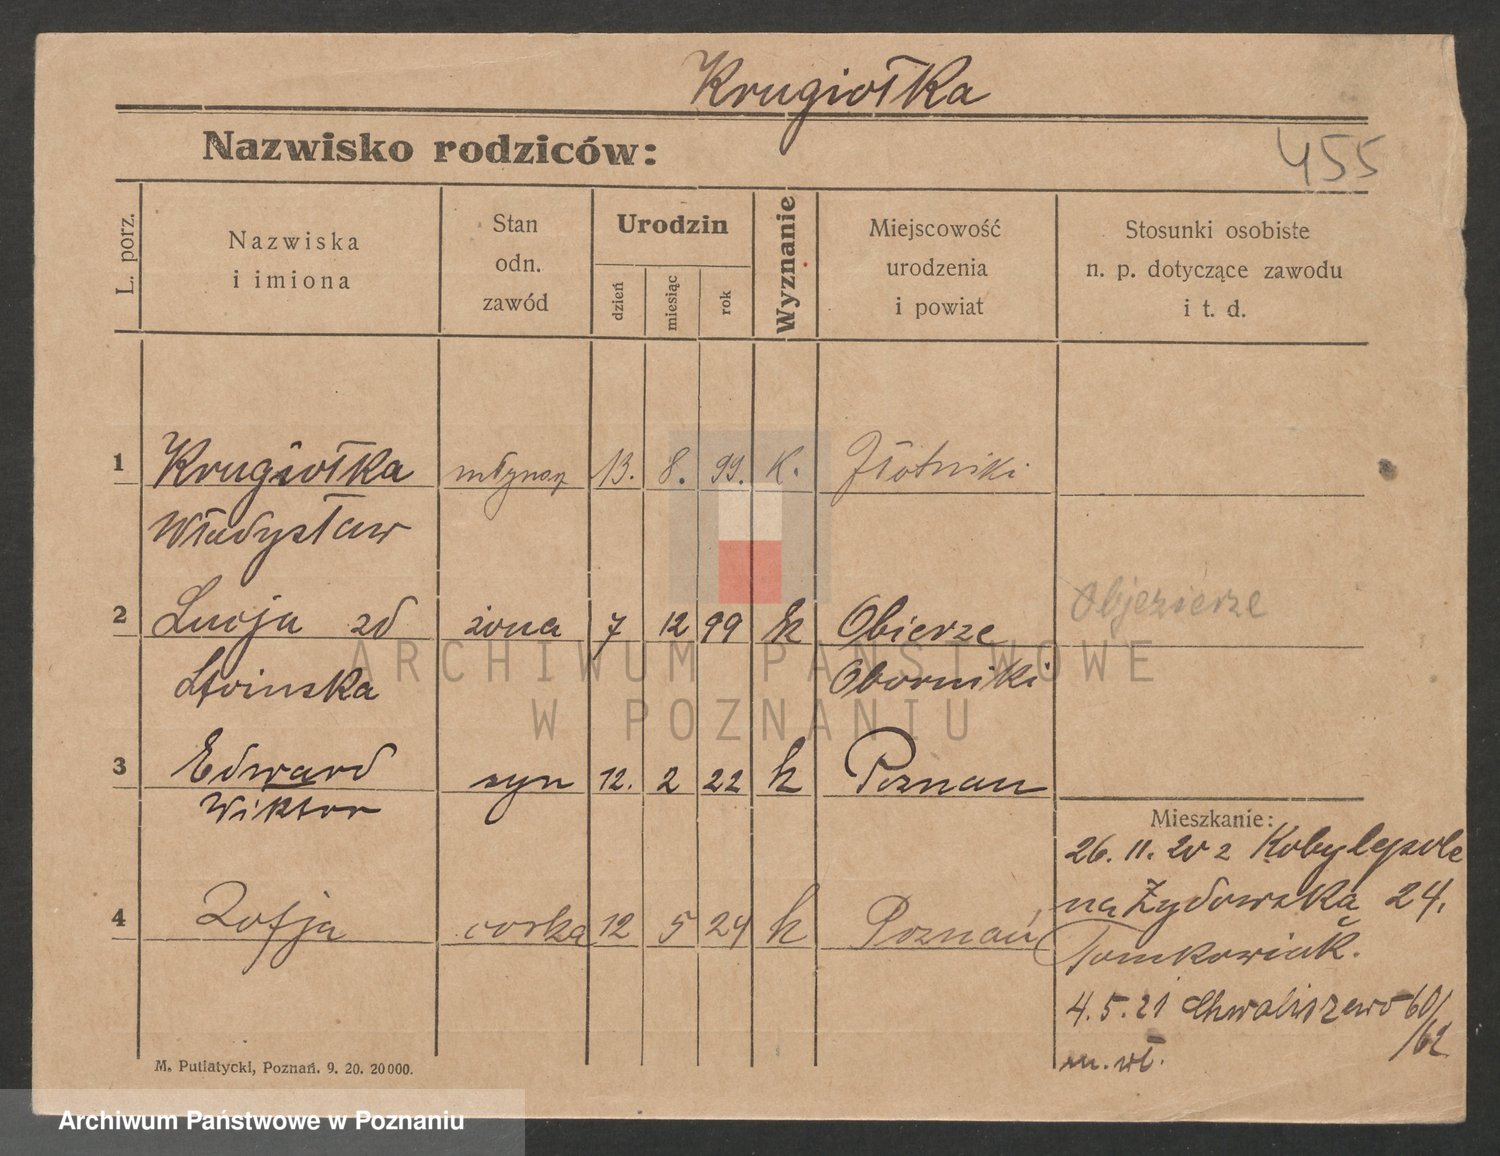 Krugiołka
Nazwisko rodziców:
455
L. porz.
Nazwiska
i imiona
Stan
odn.
zawód
Urodzin
dzień
miesiąc
rok
Wyznanie
Miejscowość
urodzenia
i powiat
Stosunki osobiste
n. p. dotyczące zawodu
i t. d.
1 Krugiołka młynarz 13. 8. 99. k. Złotniki
Władysław
2 Lucja zd żona 7 12 99 k Obierze Objezierze
Oborniki
3 Edward syn 12. 2 22 k Poznan
Wiktor
Mieszkanie:
26. 11. 20 z Kobylepole
na Żydowska 24.
4 Zofja corka 12 5 24 k Poznań
Tomkowiak.
4. 5. 21 Chwaliszewo 60/
/62
m. wł.
M. Putiatycki, Poznań. 9. 20. 20000.
ARCHIWUM PAŃSTWOWE
W POZNANIU
Archiwum Państwowe w Poznaniu